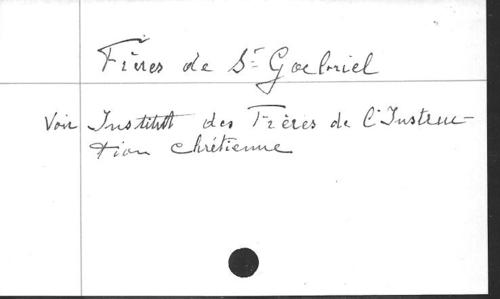 Frères de St Gabriel
Voir Institut des Frères de l'Instruc-
tion chrétienne